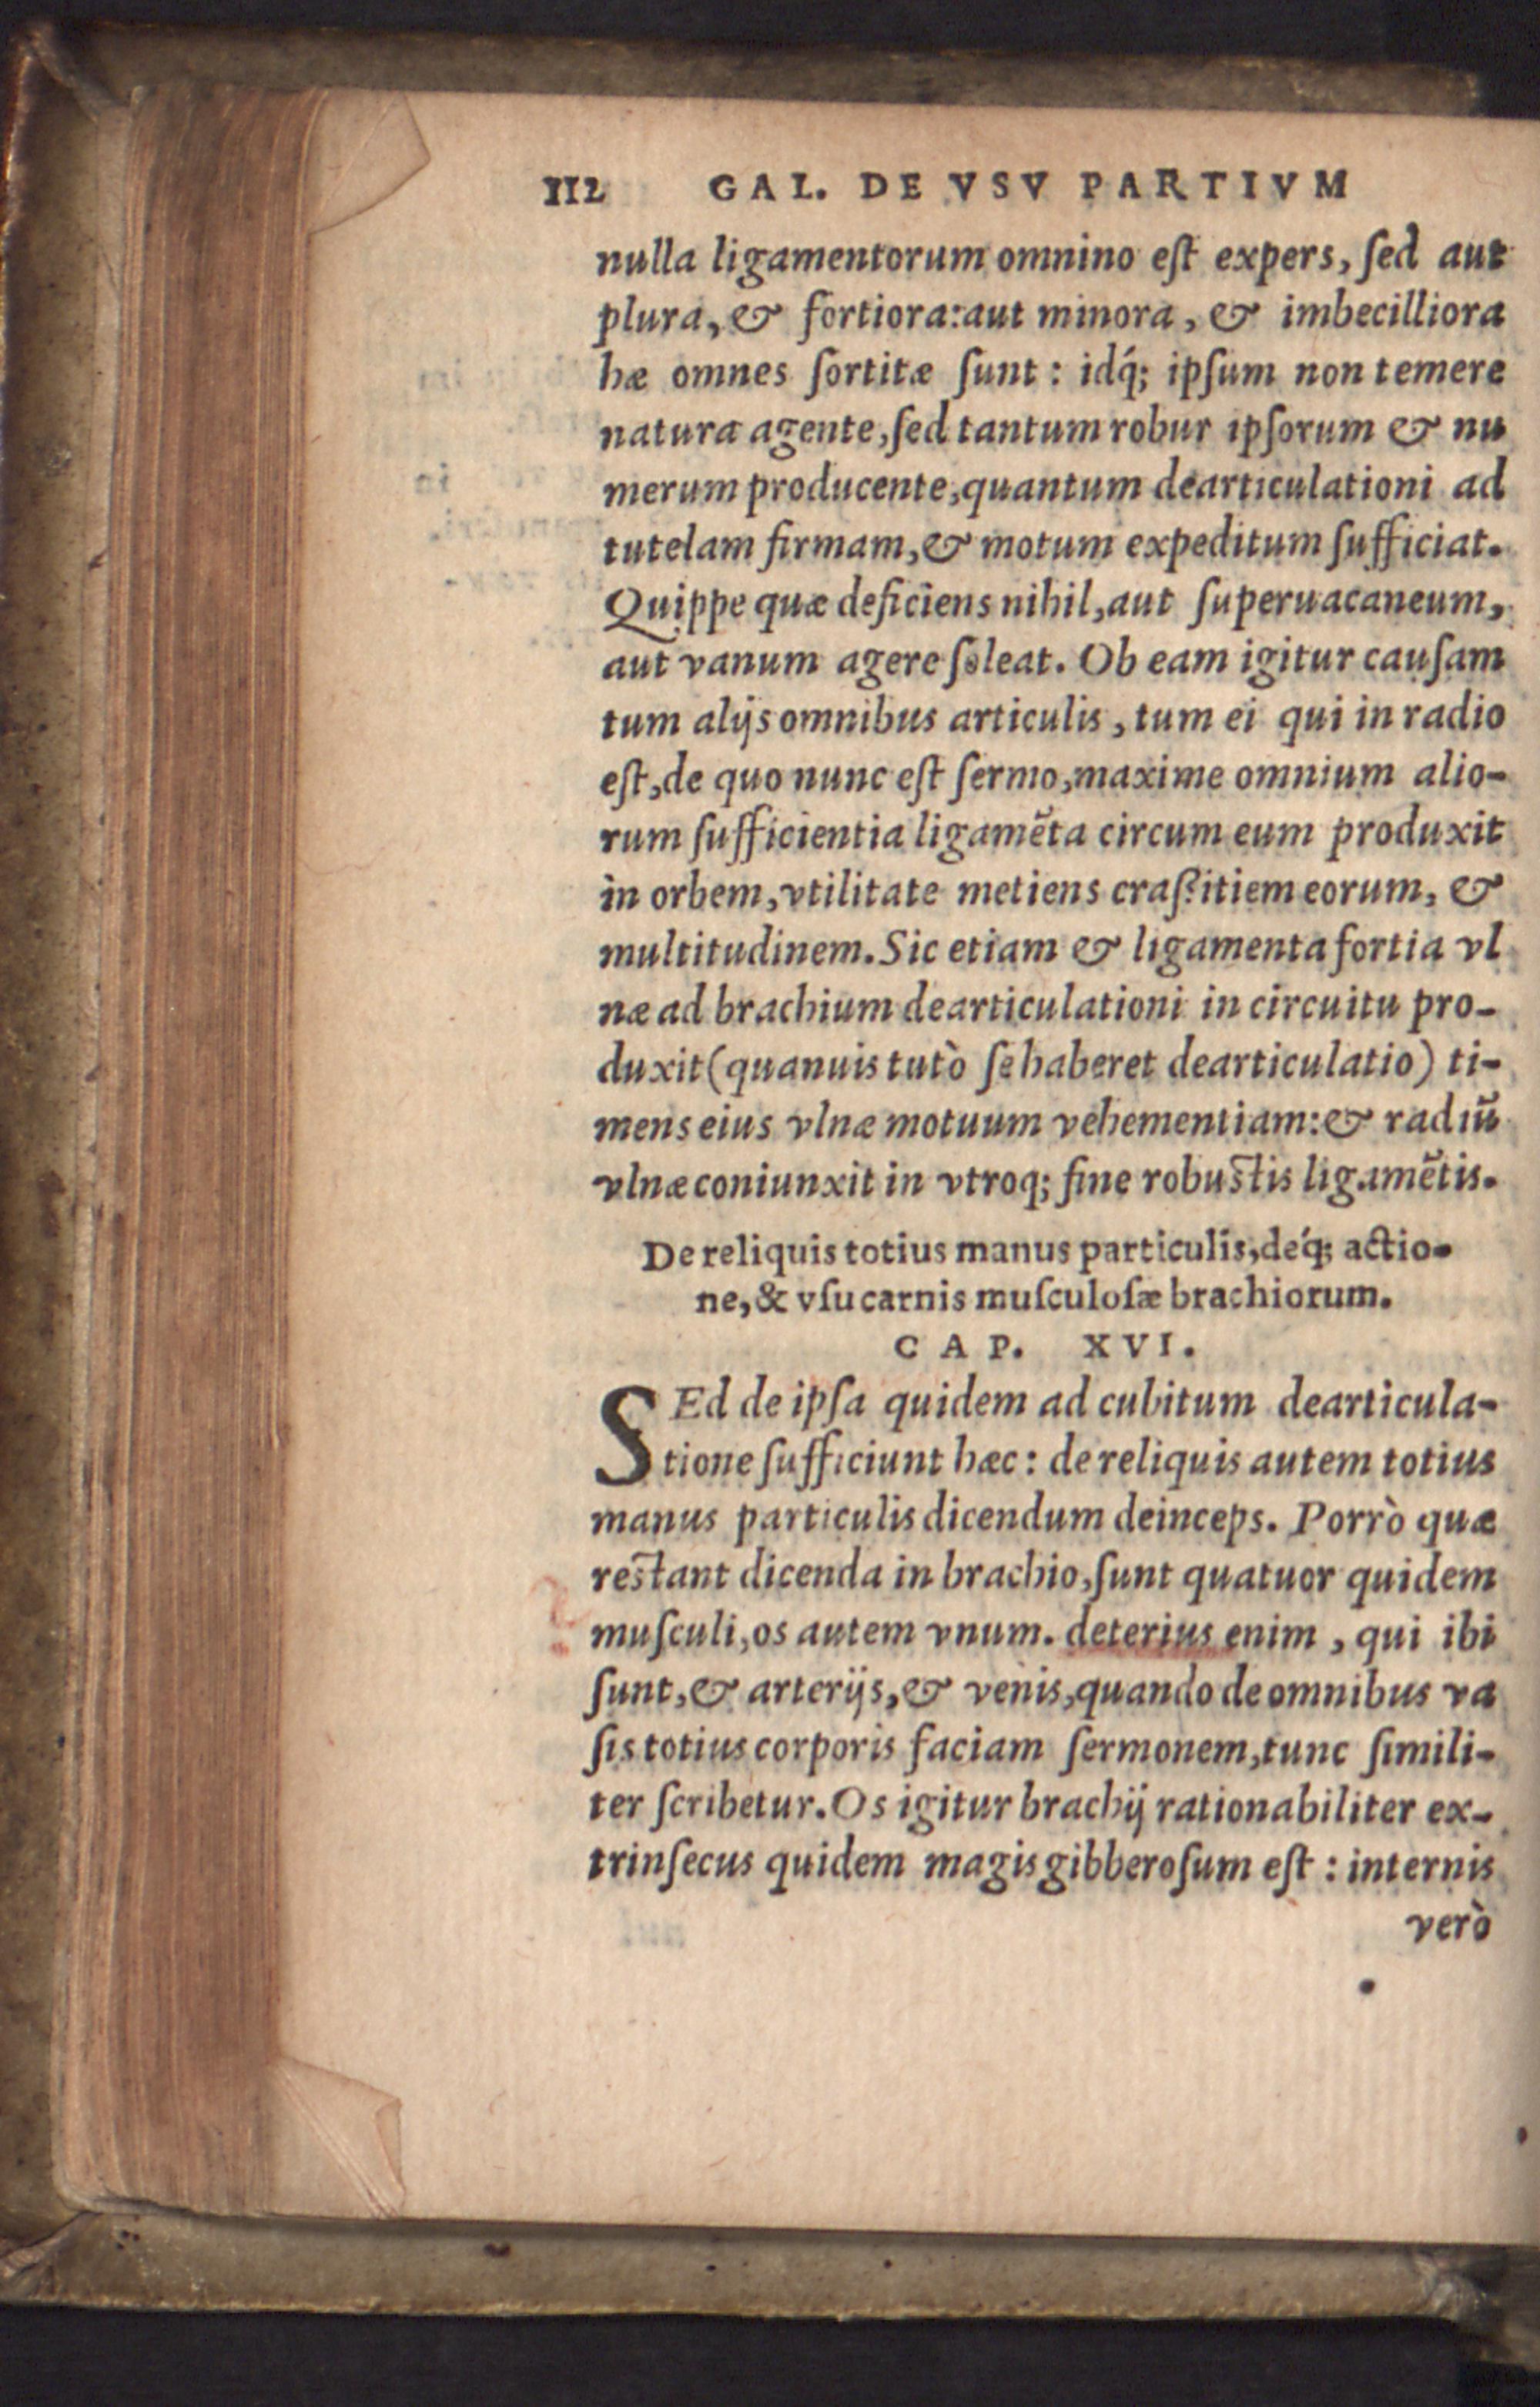 112 GAL. DE VSV PARTIVM
nulla ligamentorum omnino eſt expers, ſed aut
plura, & fortiora: aut minora, & imbecilliora
hæ omnes ſortitæ ſunt: idq́; ipſum non temere
natura agente, ſed tantum robur ipſorum & nu
merum producente, quantum dearticulationi ad
tutelam firmam, & motum expeditum ſufficiat.
Quippe quæ deficiens nihil, aut ſuperuacaneum,
aut vanum agere ſoleat. Ob eam igitur cauſam
tum alijs omnibus articulis, tum ei qui in radio
eſt, de quo nunc eſt ſermo, maxime omnium alio-
rum ſufficientia ligamēta circum eum produxit
in orbem, vtilitate metiens craſsitiem eorum, &
multitudinem. Sic etiam & ligamenta fortia vl
næ ad brachium dearticulationi in circuitu pro-
duxit (quanuis tutò ſe haberet dearticulatio) ti-
mens eius vlnæ motuum vehementiam: & radiū
vlnæ coniunxit in vtroq; fine robuſtis ligamētis.
De reliquis totius manus particulis, deq́; actio-
ne, & vſu carnis muſculoſæ brachiorum.
CAP. XVI.
SEd de ipſa quidem ad cubitum dearticula-
tione ſufficiunt hæc: de reliquis autem totius
manus particulis dicendum deinceps. Porrò quæ
reſtant dicenda in brachio, ſunt quatuor quidem
muſculi, os autem vnum. deterius enim, qui ibi
ſunt, & arterijs, & venis, quando de omnibus va
ſis totius corporis faciam ſermonem, tunc ſimili-
ter ſcribetur. Os igitur brachij rationabiliter ex-
trinſecus quidem magis gibberoſum eſt: internis
verò